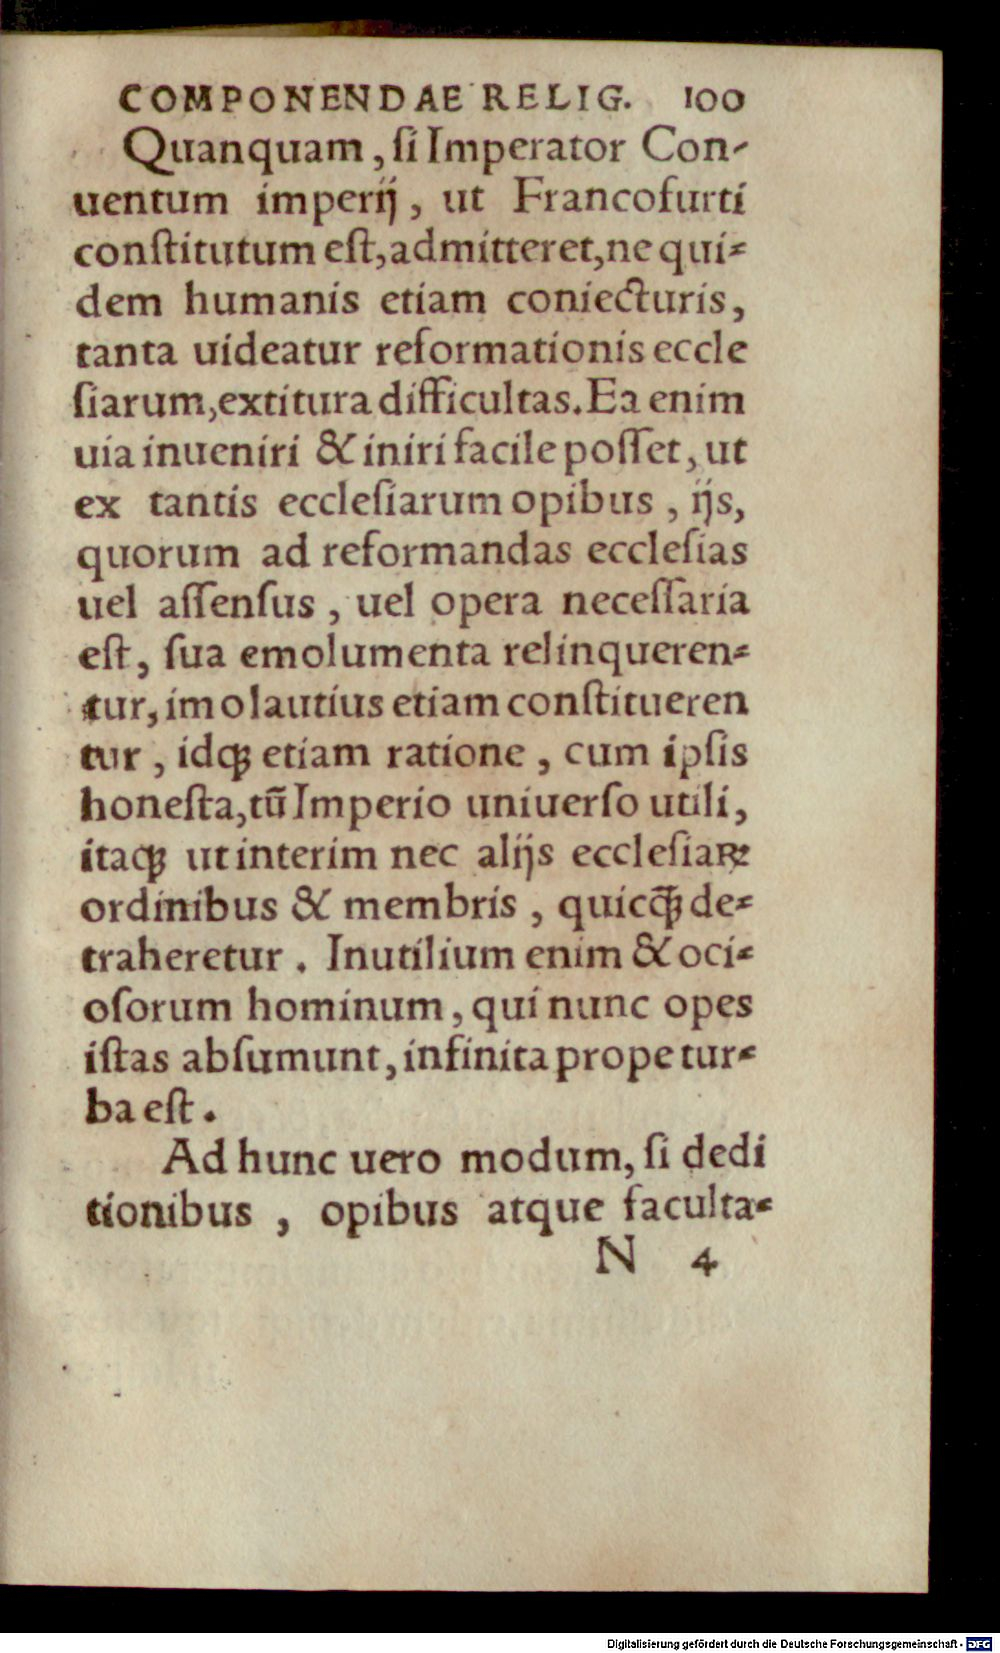 COMPONENDAE RELIG. 100
Quanquam, ſi Imperator Con-
uentum imperij, ut Francofurti
conſtitutum eſt, admitteret, ne qui-
dem humanis etiam coniecturis,
tanta uideatur reformationis eccle
ſiarum, extitura difficultas. Ea enim
uia inueniri & iniri facile poſſet, ut
ex tantis eccleſiarum opibus, ijs,
quorum ad reformandas eccleſias
uel aſſenſus, uel opera neceſſaria
eſt, ſua emolumenta relinqueren-
tur, imo lautius etiam conſtitueren
tur, idꝗ; etiam ratione, cum ipſis
honeſta, tū Imperio uniuerſo utili,
itaꝗ; ut interim nec alijs eccleſiaꝝ
ordinibus & membris, quicꝗ̃; de-
traheretur. Inutilium enim & oci-
oſorum hominum, qui nunc opes
iſtas abſumunt, infinita prope tur-
ba eſt.
Ad hunc uero modum, ſi dedi
tionibus, opibus atque faculta-
N 4
Digitalisierung gefördert durch die Deutsche Forschungsgemeinschaft - DFG